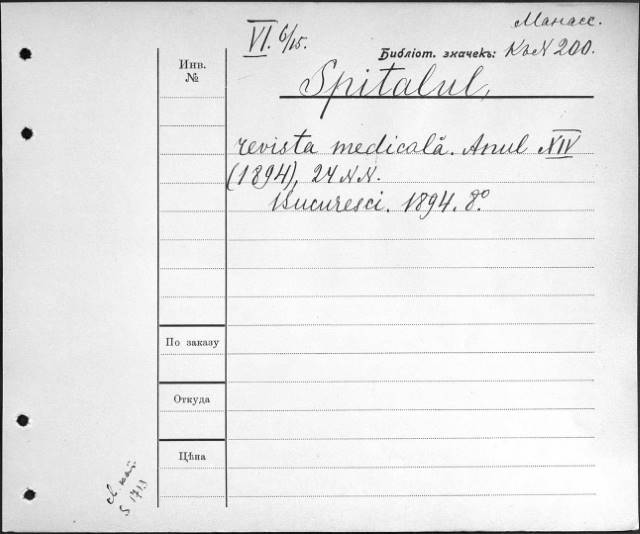 Манасс.
VI. 6/15.
Библіот. значекъ: К. № 200.
Инв.
№
Spitalul,
revista medicală. Anul XIV
(1894), 24 N.N.
Bucuresci. 1894. 8°.
По заказу
Откуда
Цѣна
S 1711